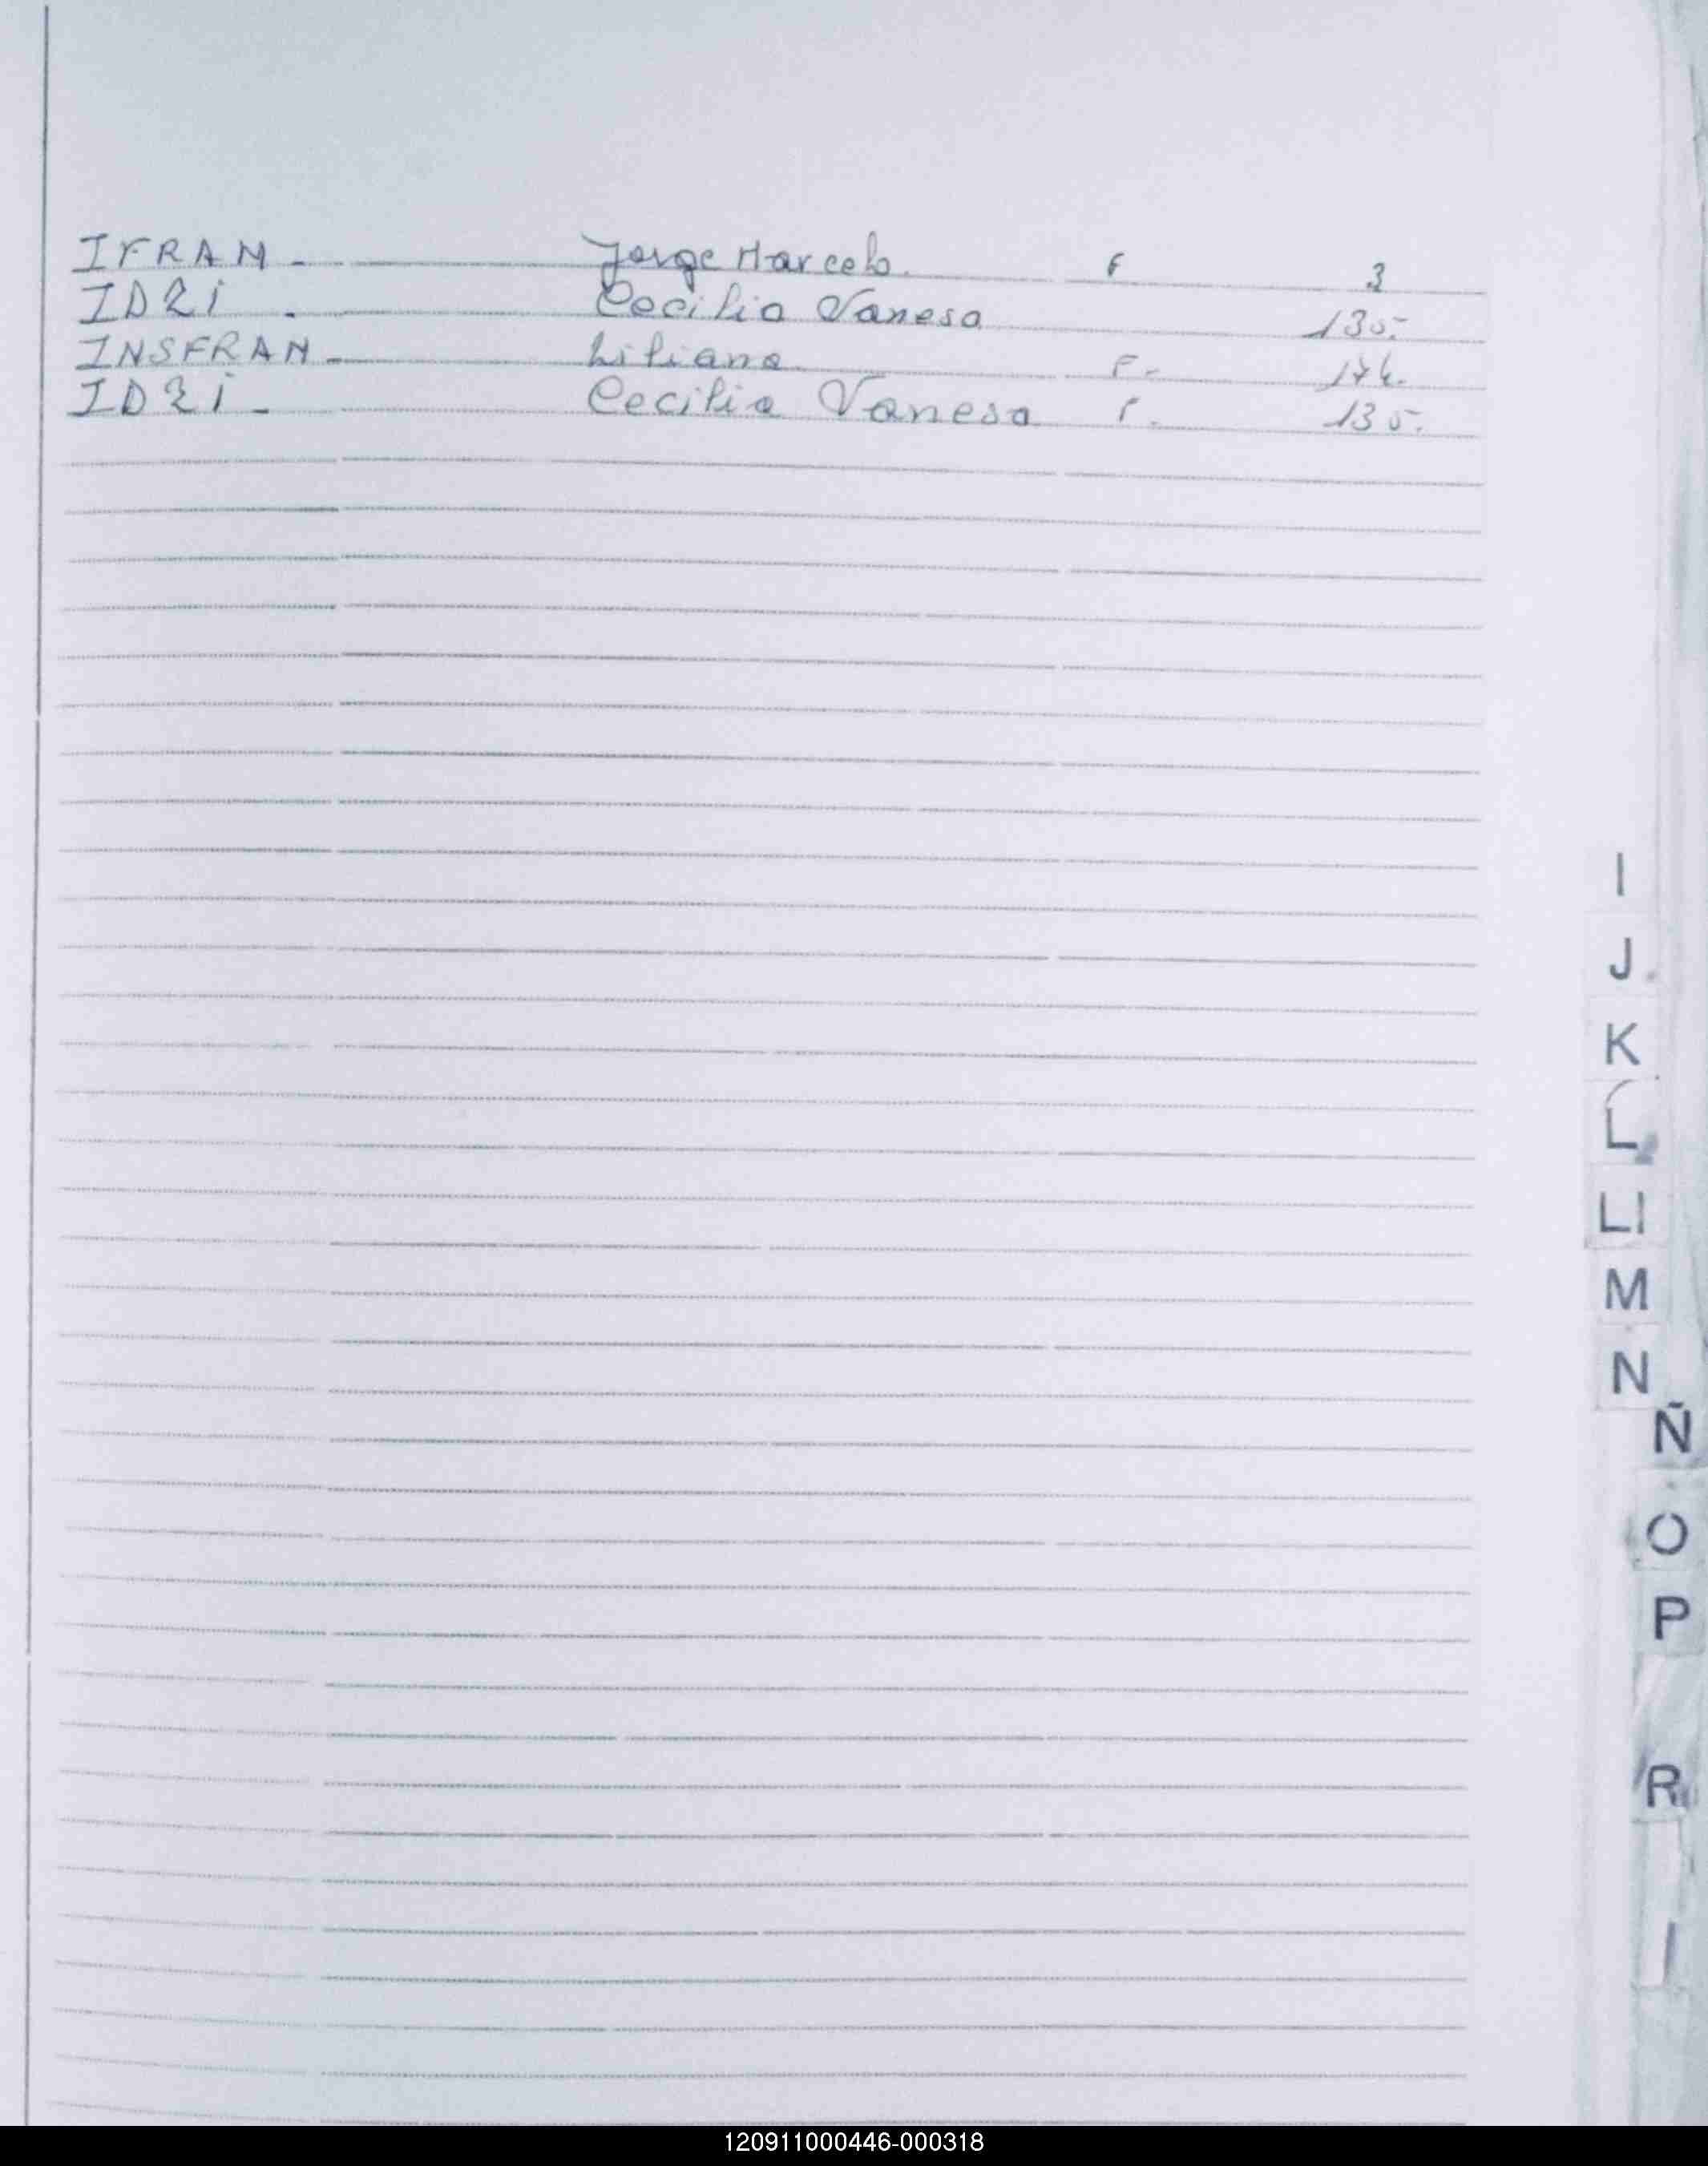 IFRAN - Jorge Marcelo. F 3
IDRI . Cecilia Vanesa 135.-
INSFRAN - Liliana F.- 174.
IDRI - Cecilia Vanesa F. 135.
I
J
K
L
Ll
M
N
Ñ
O
P
R
120911000446-000318